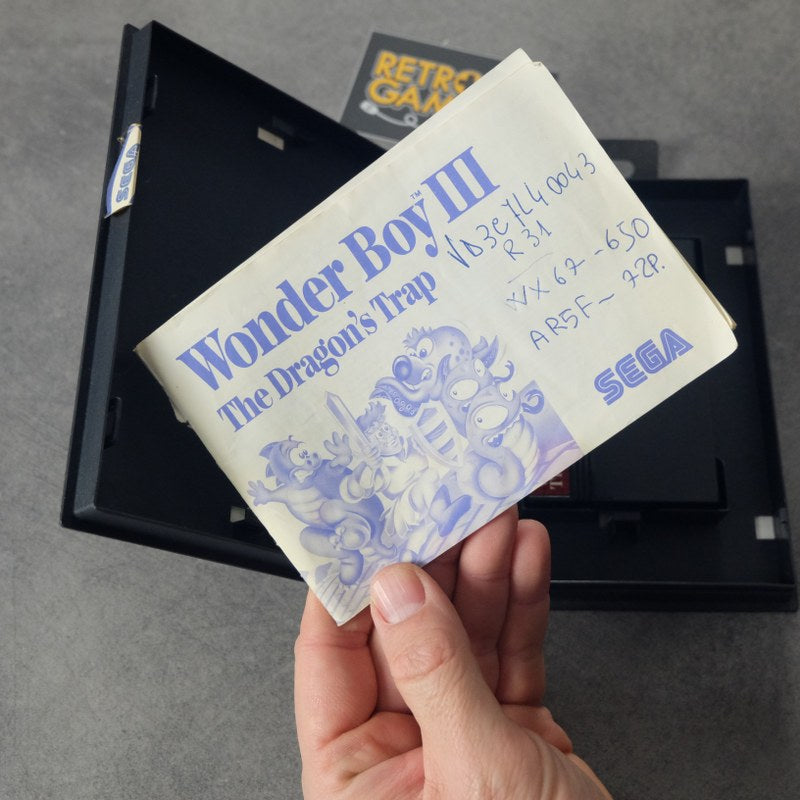 RETRO
GAM
SEGA
Wonder Boy III ™
The Dragon's Trap
VD3C7L40043
R31
WX67-650
AR5F- 72P.
SEGA